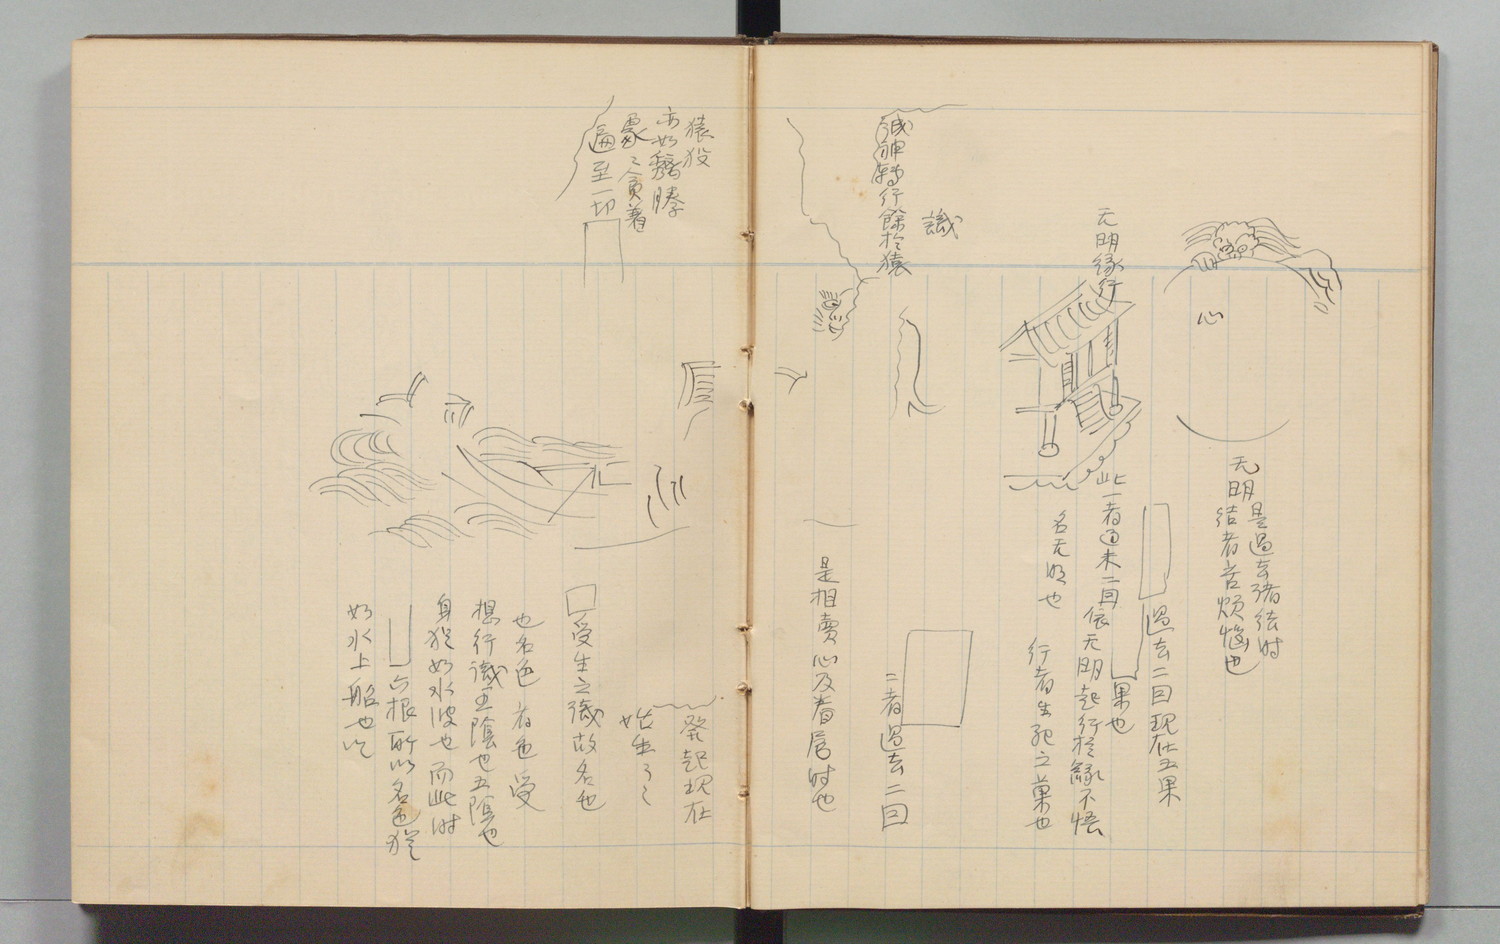 心
无明
是過去諸結时
結者苦煩惱也
過去二因現在五果
果也
无明縁行
此一者過未二因依无明起行於縁不悟
名无明也
行者生死之菓也
識
識神轉行餘於猿
二者過去二因
是相賣心及着居时也
發起現在
始生了々
受生之識故名也
也名色者色受
想行識五陰也五陰也
身猶如水波也而此时
六根所以名色猶
如水上船也
猿投
亦如
衆〻貪着
遍至一切